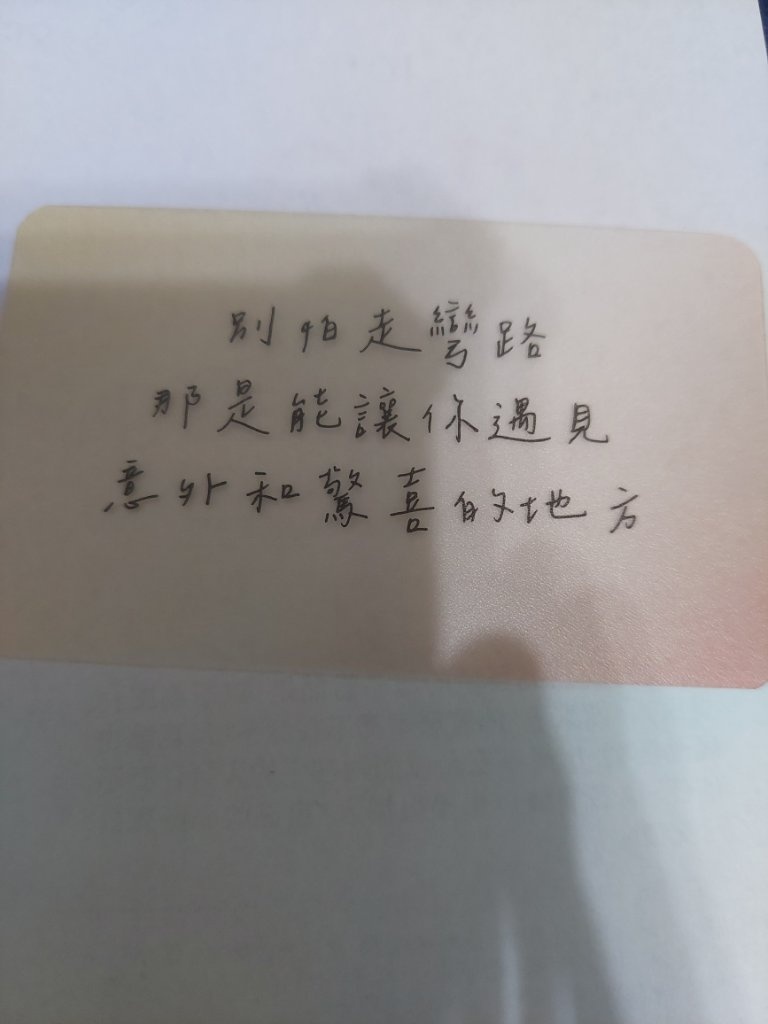 別怕走彎路
那是能讓你遇見
意外和驚喜的地方